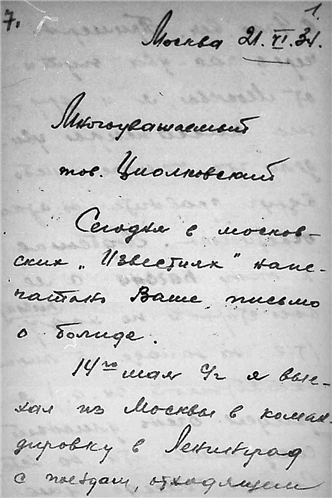 7.
1.
Москва 21.VI.34.
Многоуважаемый
тов. Циолковский
Сегодня в москов-
ских „Известиях" напе-
чатано Ваше письмо
о болиде.
14го мая с/г я вые-
хал из Москвы в коман-
дировку в Ленинград
с поездом, отходящем